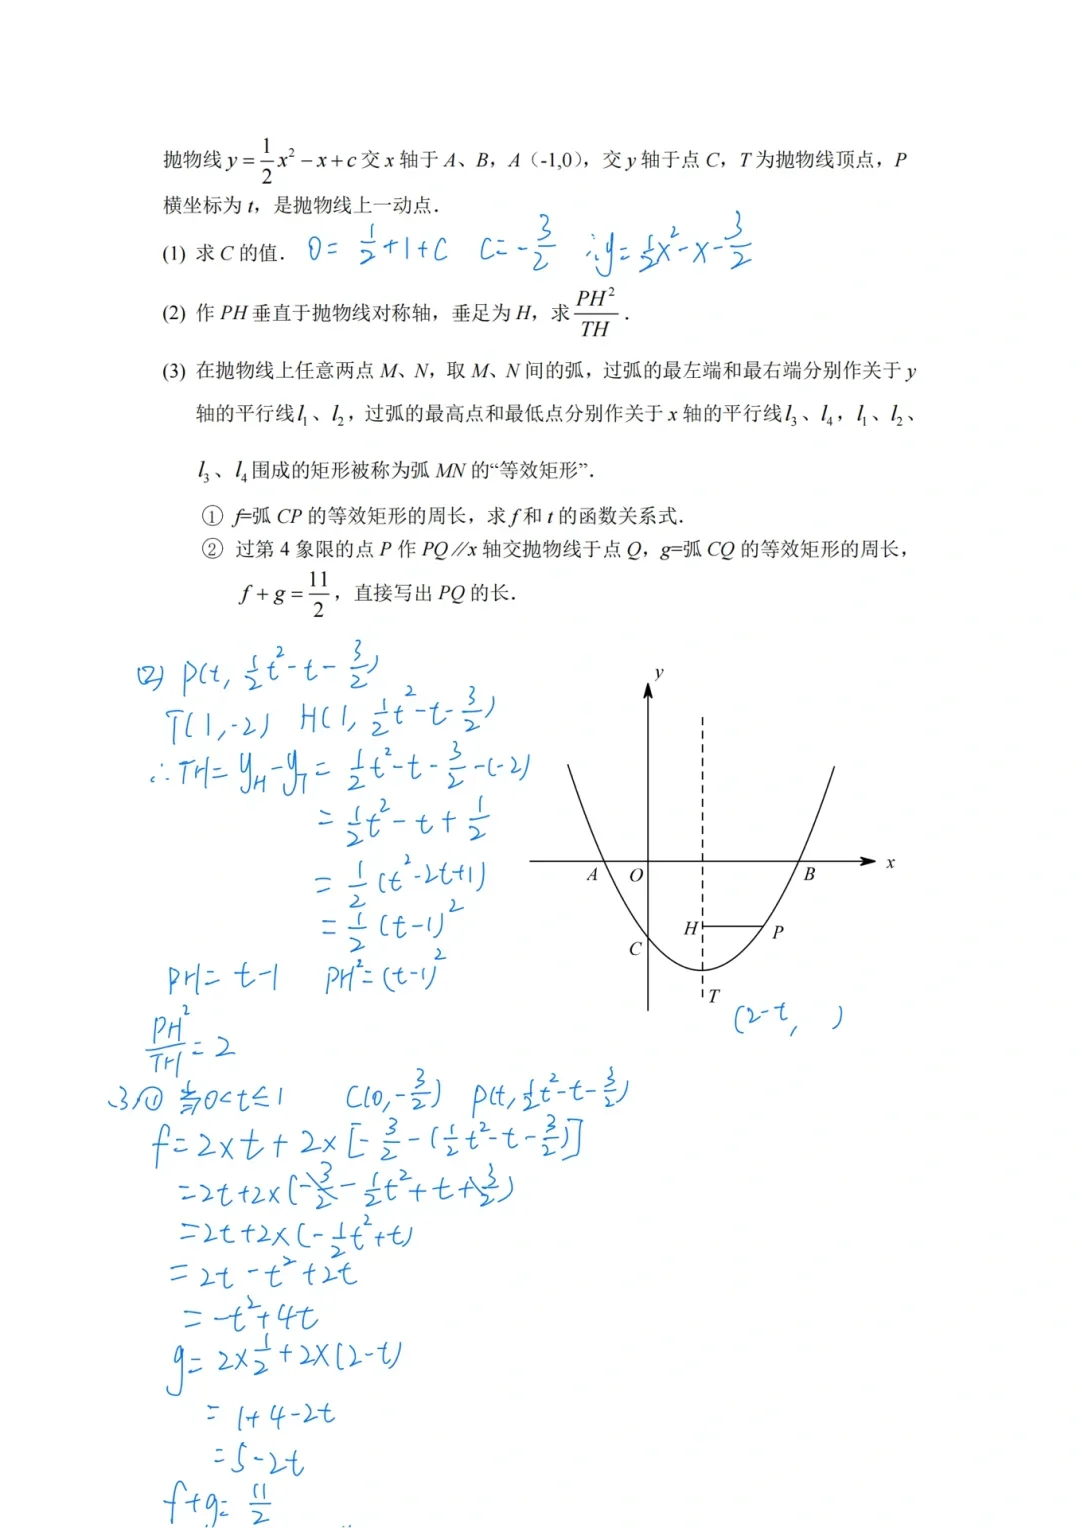 抛物线 y = 1/2 x² − x + c 交 x 轴于 A、B，A（-1,0），交 y 轴于点 C，T 为抛物线顶点，P
横坐标为 t，是抛物线上一动点．
(1) 求 C 的值． 0 = 1/2 + 1 + C C = -3/2 ∴y = 1/2 x² - x - 3/2
(2) 作 PH 垂直于抛物线对称轴，垂足为 H，求 PH²/TH ．
(3) 在抛物线上任意两点 M、N，取 M、N 间的弧，过弧的最左端和最右端分别作关于 y
轴的平行线 l₁、l₂，过弧的最高点和最低点分别作关于 x 轴的平行线 l₃、l₄，l₁、l₂、
l₃、l₄ 围成的矩形被称为弧 MN 的“等效矩形”．
① f=弧 CP 的等效矩形的周长，求 f 和 t 的函数关系式．
② 过第 4 象限的点 P 作 PQ∥x 轴交抛物线于点 Q，g=弧 CQ 的等效矩形的周长，
f + g = 11/2，直接写出 PQ 的长．
(2) P(t, 1/2 t² - t - 3/2)
T(1, -2) H(1, 1/2 t² - t - 3/2)
∴TH = y_H - y_T = 1/2 t² - t - 3/2 - (-2)
= 1/2 t² - t + 1/2
= 1/2 (t² - 2t + 1)
= 1/2 (t-1)²
PH = t-1 PH² = (t-1)²
PH²/TH = 2
y
x
A
O
B
H
P
C
T
(2-t, )
3) ① 当0<t≤1 C(0, -3/2) P(t, 1/2 t² - t - 3/2)
f = 2×t + 2×[-3/2 - (1/2 t² - t - 3/2)]
= 2t + 2×(-3/2 - 1/2 t² + t + 3/2)
= 2t + 2×(-1/2 t² + t)
= 2t - t² + 2t
= -t² + 4t
g = 2×1/2 + 2×(2-t)
= 1 + 4 - 2t
= 5 - 2t
f + g = 11/2